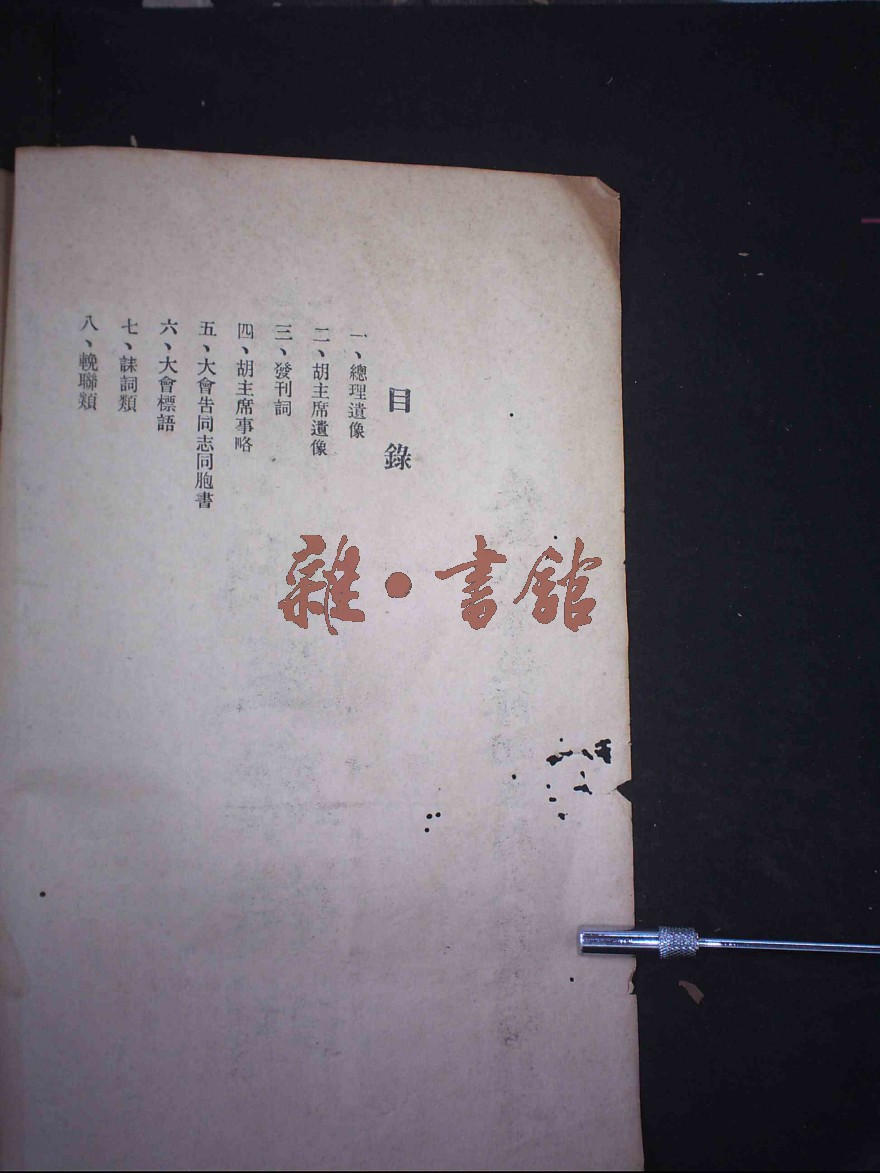 目錄
一、總理遺像
二、胡主席遺像
三、發刊詞
四、胡主席事略
五、大會告同志同胞書
六、大會標語
七、誄詞類
八、輓聯類
雜·書館